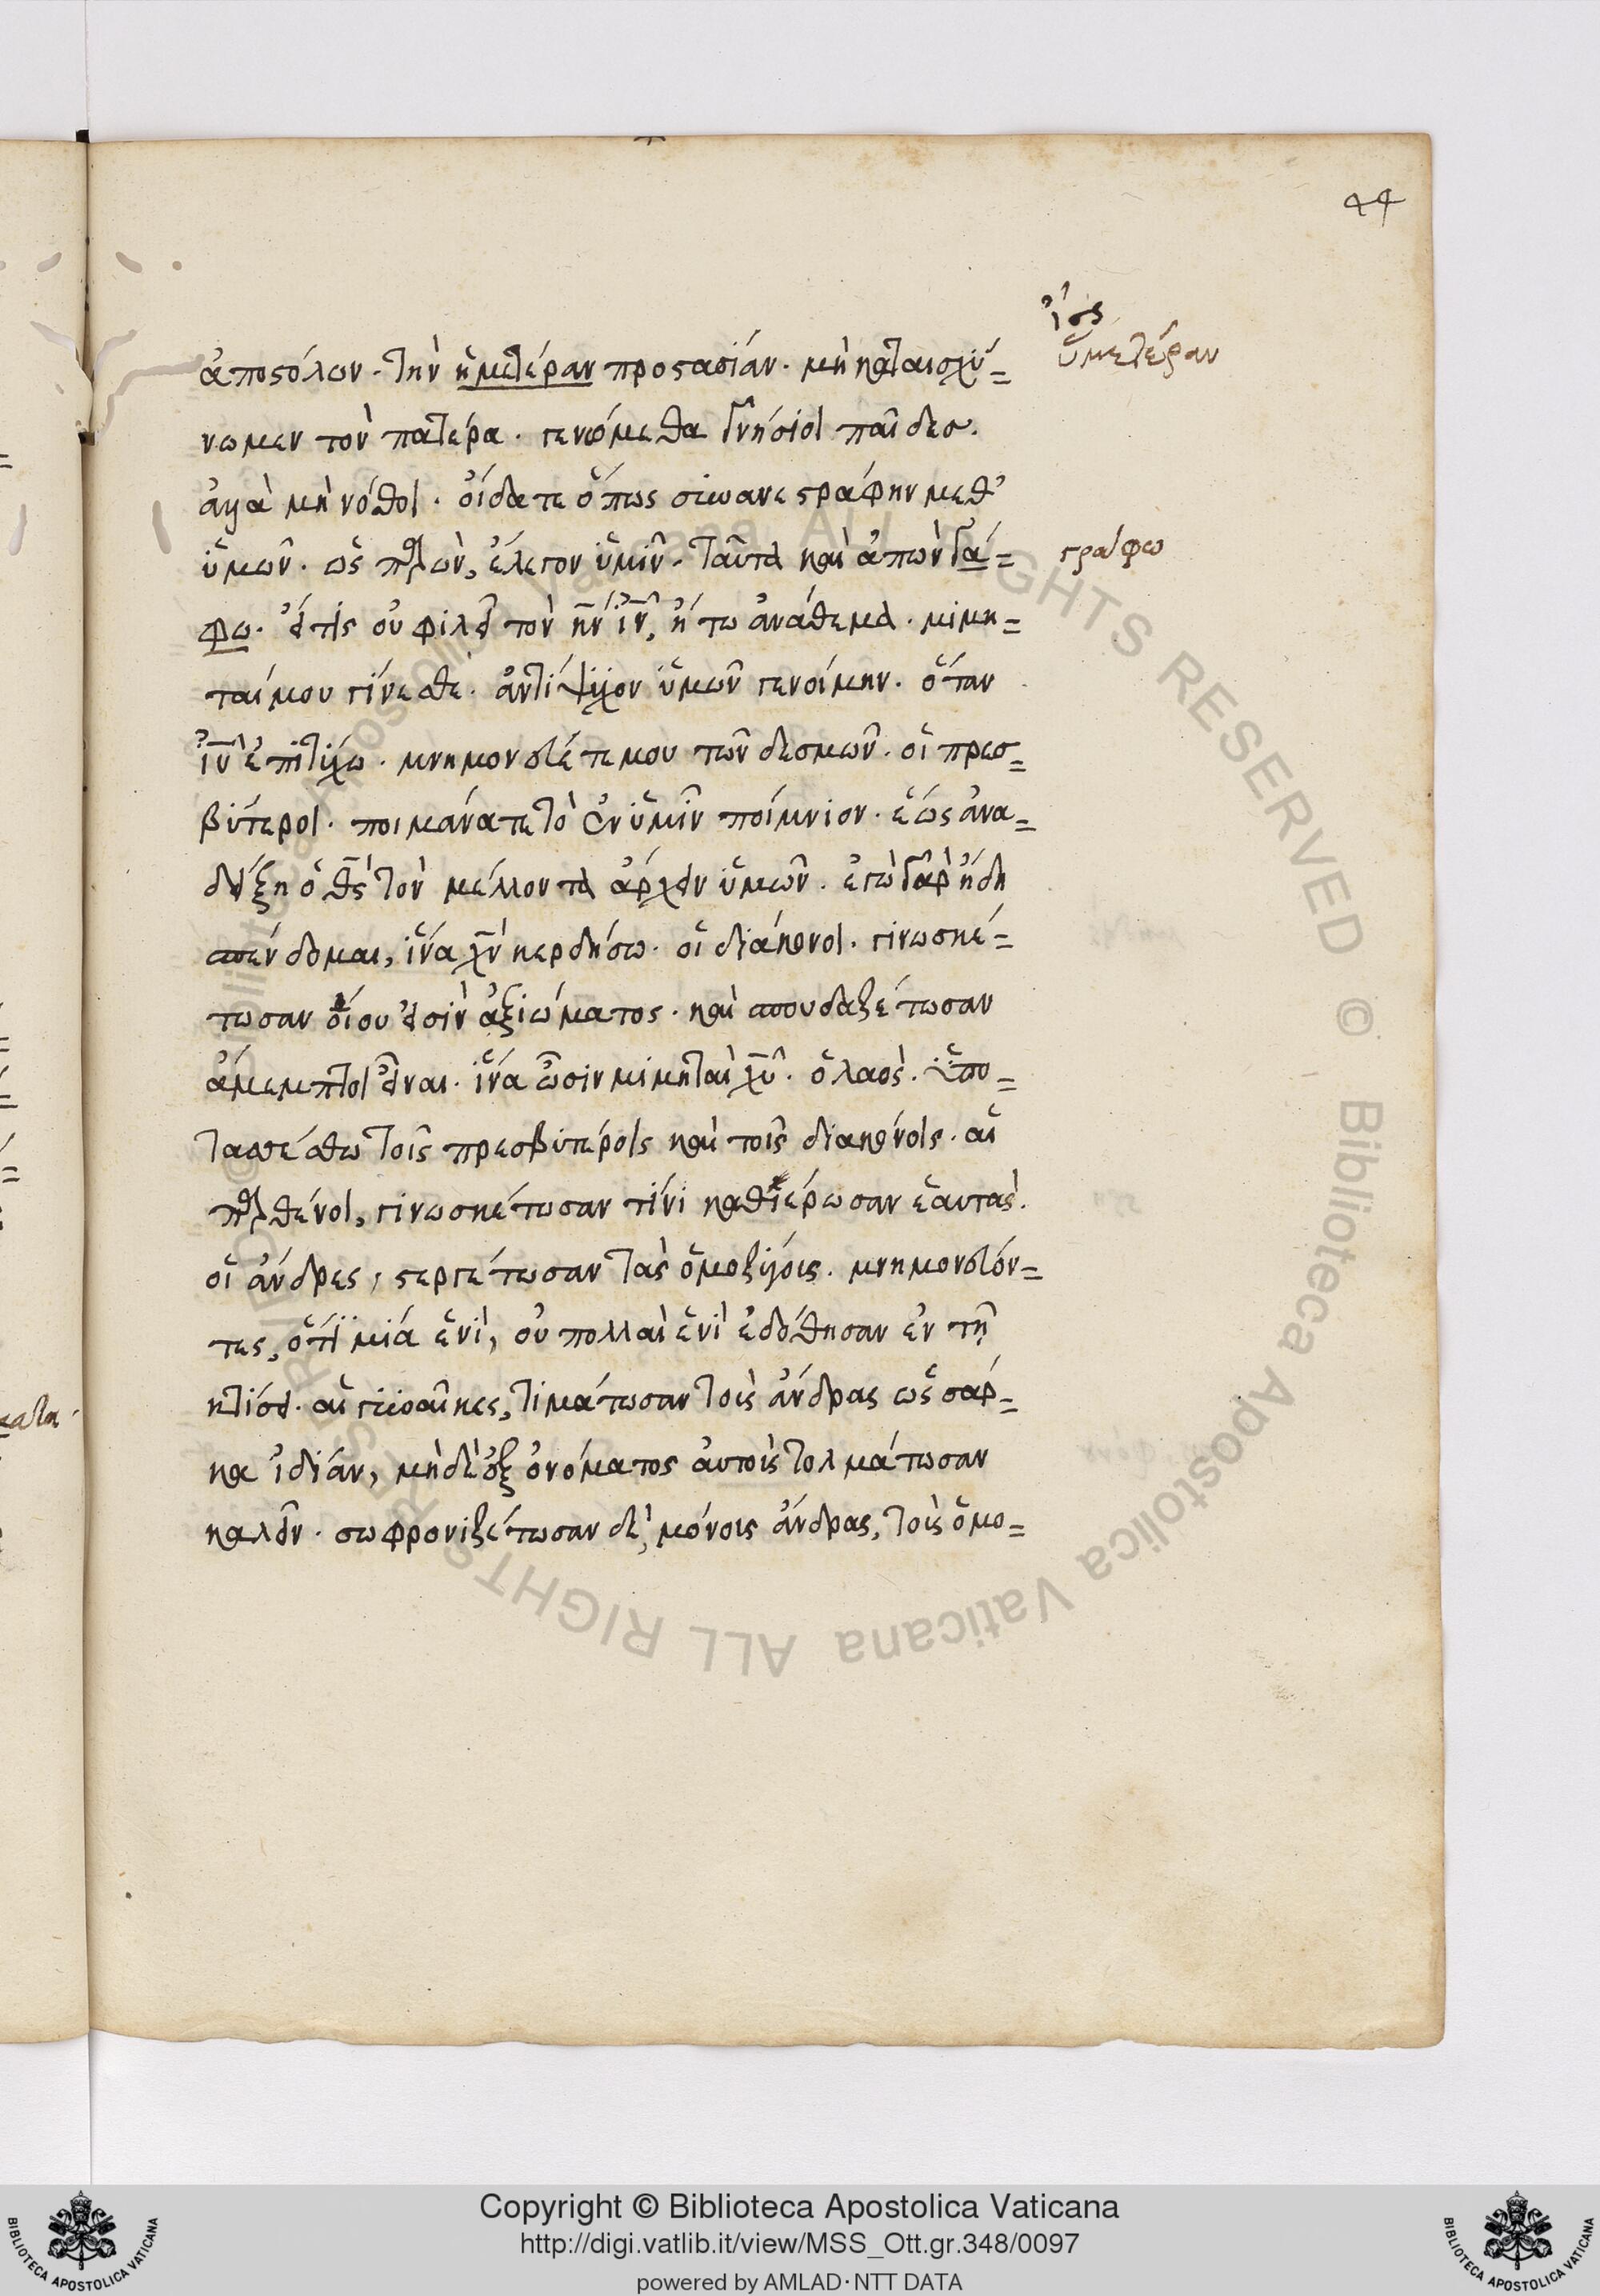 44
ἴσως
ὑμετέραν
ἀποστόλων. τὴν ἡμετέραν προστασίαν. μὴ καταισχύ=
νωμεν τὸν πατέρα. γενόμεθα γνήσιοι παῖδεσ.
ἀλλὰ μὴ νόθοι. οἴδατε ὅπως συνανεστράφην μεθ᾽
ὑμῶν. ὡς παρὼν, ἔλεγον ὑμῖν. ταῦτα καὶ ἀπὼν γρά=
γράφω
φω. εἴτις οὐ φιλεῖ τὸν κ̅ν̅ ι̅ν̅, ἤτω ἀνάθεμα. μιμη=
ταί μου γίνεσθε. ἀντίψυχον ὑμῶν γενοίμην. ὅταν
ι̅υ̅ ἐπιτύχω. μνημονεύετέ μου τῶν δεσμῶν. οἱ πρεσ=
βύτεροι. ποιμάνατε τὸ ἐν ὑμῖν ποίμνιον. ἕως ἀνα=
δείξη ὁ θ̅ς̅ τὸν μέλλοντα ἄρχειν ὑμῶν. ἐγὼ γὰρ ἤδη
σπένδομαι, ἵνα χ̅ν̅ κερδήσω. οἱ διάκονοι. γινωσκέ=
τωσαν οἵου εἰσὶν ἀξιώματος. καὶ σπουδαζέτωσαν
ἄμεμπτοι εἶναι. ἵνα ὦσιν μιμηταὶ χ̅υ̅. ὁ λαὸς. ὑπο=
τασσέσθω τοῖς πρεσβυτέροις καὶ τοῖς διακόνοις. αἱ
παρθένοι, γινωσκέτωσαν τίνι καθιέρωσαν ἑαυτὰς.
οἱ ἄνδρες, στεργέτωσαν τὰς ὁμοζύγους. μνημονεύον=
τες, ὅτι μία ἑνὶ, οὐ πολλαὶ ἑνὶ ἐδόθησαν ἐν τῇ
κτίσει. αἱ γυναῖκες, τιμάτωσαν τοὺς ἄνδρας ὡς σάρ=
κα ἰδίαν, μὴδὲ ἐξ ὀνόματος αὐτοὺς τολμάτωσαν
καλεῖν. σωφρονιζέτωσαν δὲ, μόνους ἄνδρας, τοὺς ὁμο=
Copyright © Biblioteca Apostolica Vaticana
http://digi.vatlib.it/view/MSS_Ott.gr.348/0097
powered by AMLAD·NTT DATA